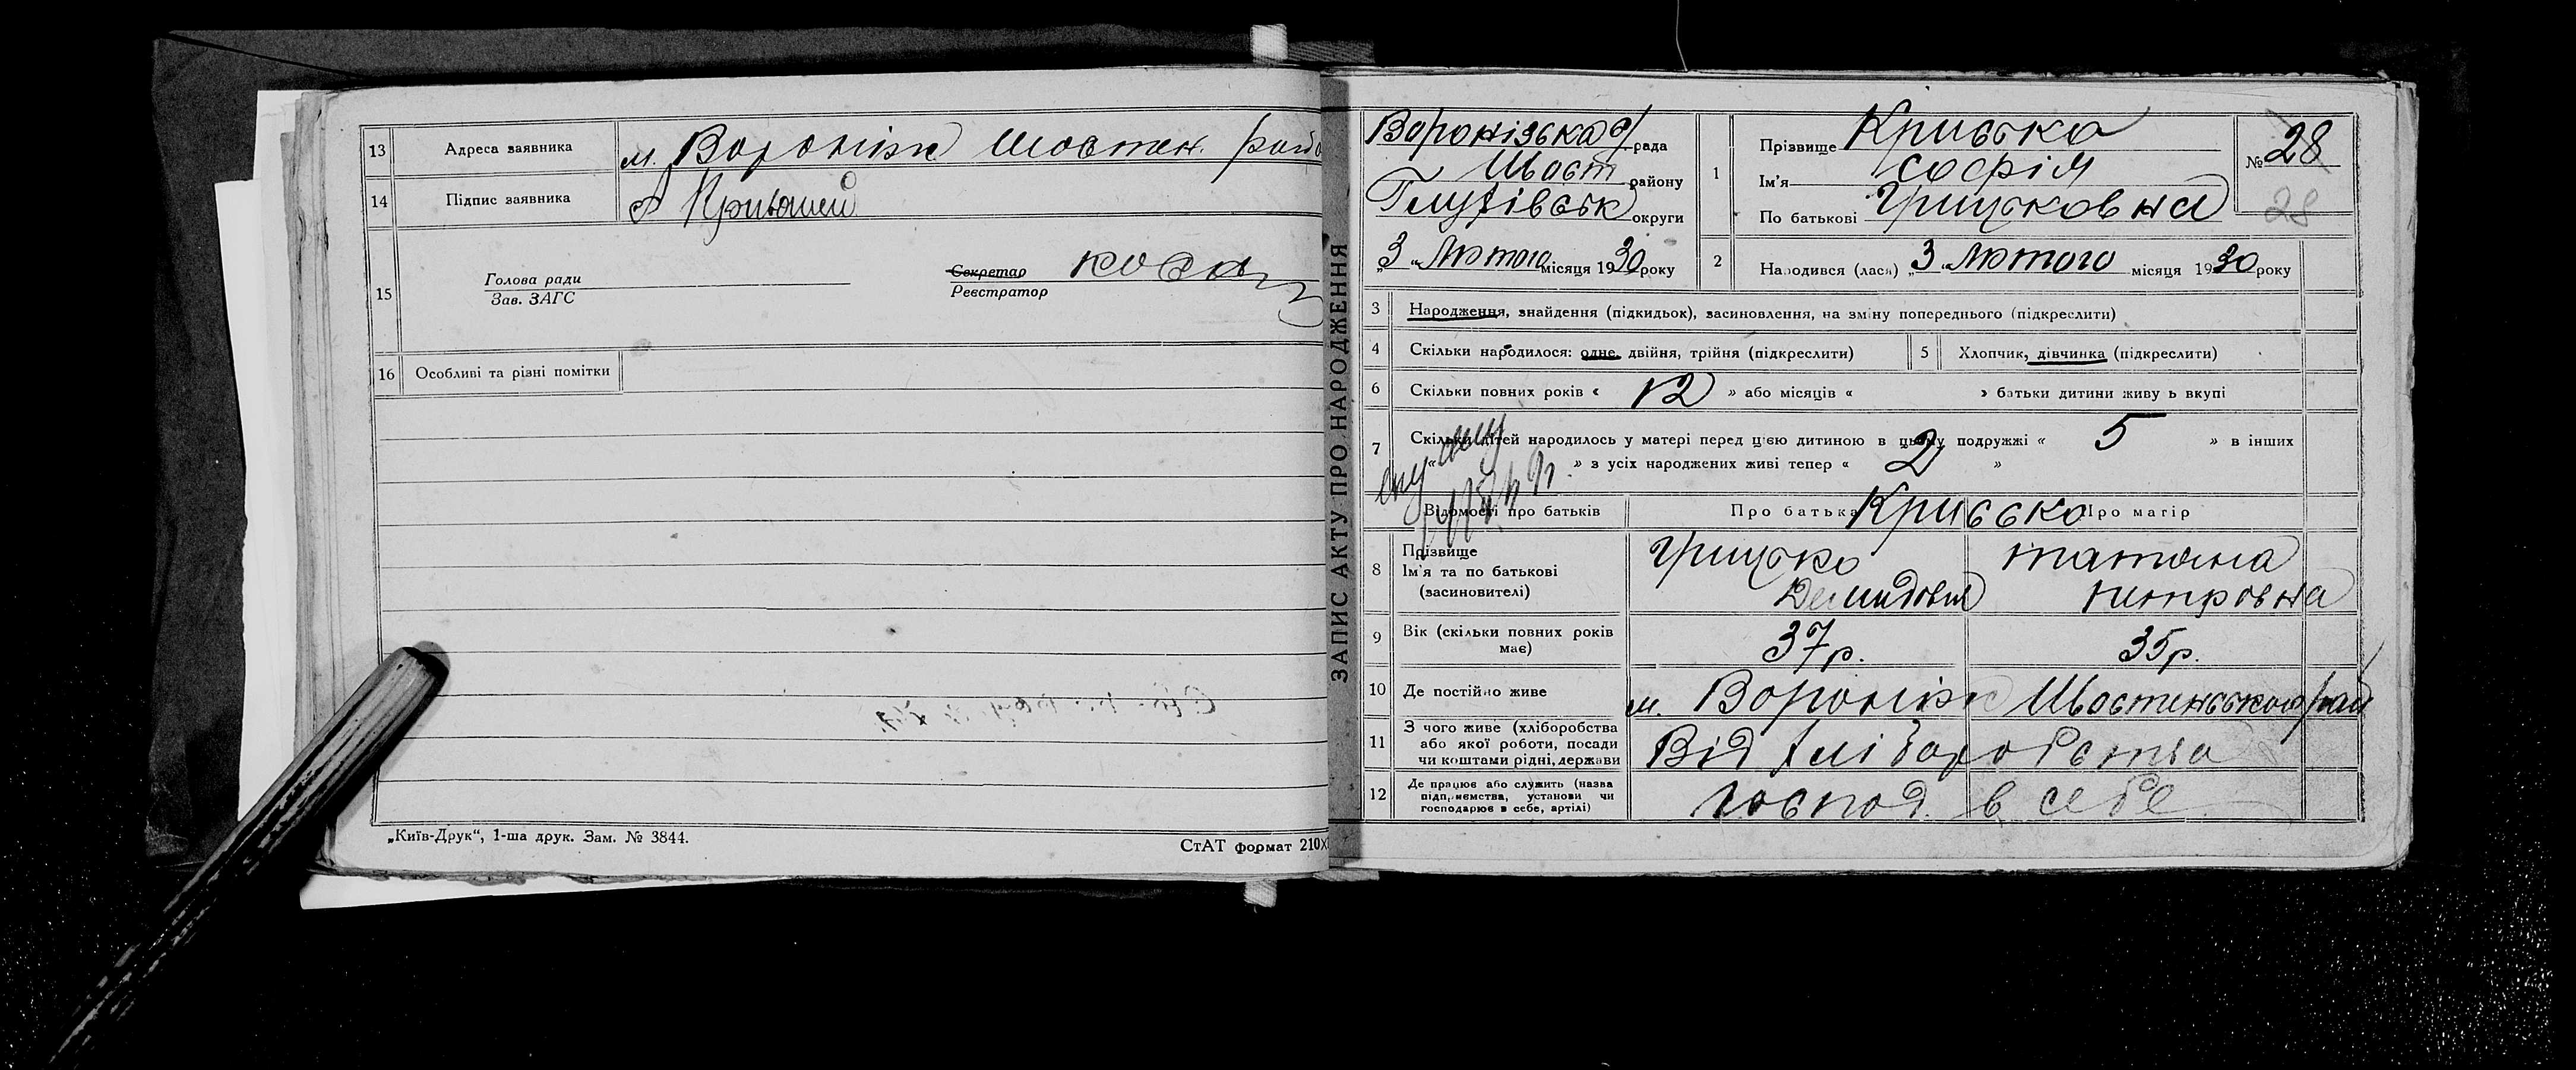 13 Адреса заявника м. Вороніж Шостен. рай
14 Підпис заявника Кривошей
15 Голова ради
Зав. ЗАГС
Секретар
Реєстратор
16 Особливі та різні помітки
„Київ-Друк“, 1-ша друк. Зам. № 3844.
СтАТ формат 210х
ЗАПИС АКТУ ПРО НАРОДЖЕННЯ
Воронізька с/рада
Шост району
Глухівськ округи
„3 „ Лютого місяця 1930 року
1 Прізвище Кривська
Ім'я Софія
По батькові Грицьковна
№ 28
28
2 Народився (лася) „3 „ Лютого місяця 1930 року
3 Народження, знайдення (підкидьок), засиновлення, на зміну попереднього (підкреслити)
4 Скільки народилося: одне, двійня, трійня (підкреслити)
5 Хлопчик, дівчинка (підкреслити)
6 Скільки повних років « 12 » або місяців « » батьки дитини живуть вкупі
7 Скільки дітей народилось у матері перед цією дитиною в цьому подружжі « 5 » в інших
« » з усіх народжених живі тепер « 2 »
Відомості про батьків Про батька Про матір
Кривсько
8 Прізвище
Ім'я та по батькові
(засиновителі)
Грицько Татяна
Демидович Питровна
9 Вік (скільки повних років має) 37р. 35р.
10 Де постійно живе м. Вороніж Шостенського рай
11 З чого живе (хліборобства
або якої роботи, посади
чи коштами рідні, держави
Від хліборобства
12 Де працює або служить (назва
підприємства, установи чи
господарює в себе, артілі)
господ. в себе